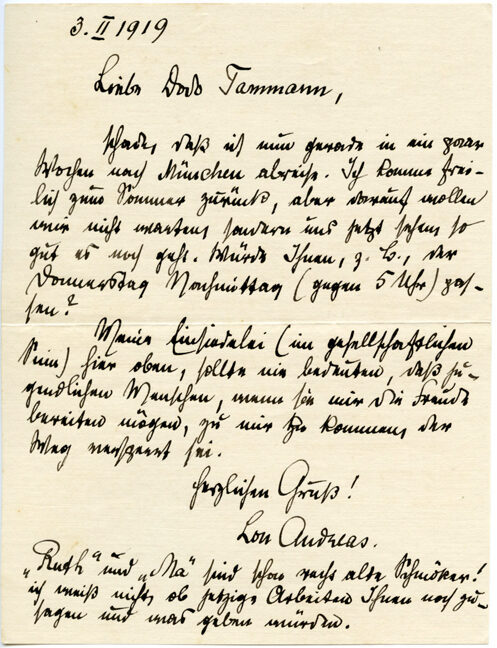 3. II 1919
Liebe Dodo Tammann,
schade, daß ich nun gerade in ein paar
Wochen nach München abreise. Ich komme frei-
lich zum Sommer zurück, aber darauf wollen
wir nicht warten, sondern uns jetzt sehen, so
gut es noch geht. Würde Ihnen, z. B., der
Donnerstag Nachmittag (gegen 5 Uhr) pas-
sen?
Meine Einsiedelei (im gesellschaftlichen
Sinn) hier oben, sollte nie bedeuten, daß ju-
gendlichen Menschen, wenn sie mir die Freude
bereiten mögen, zu mir zu kommen, der
Weg versperrt sei.
Herzlichen Gruß!
Lou Andreas.
„Ruth“ und „Ma“ sind schon recht alte Schmöker!
ich weiß nicht, ob jetzige Arbeiten Ihnen noch zu-
sagen und was geben würden.